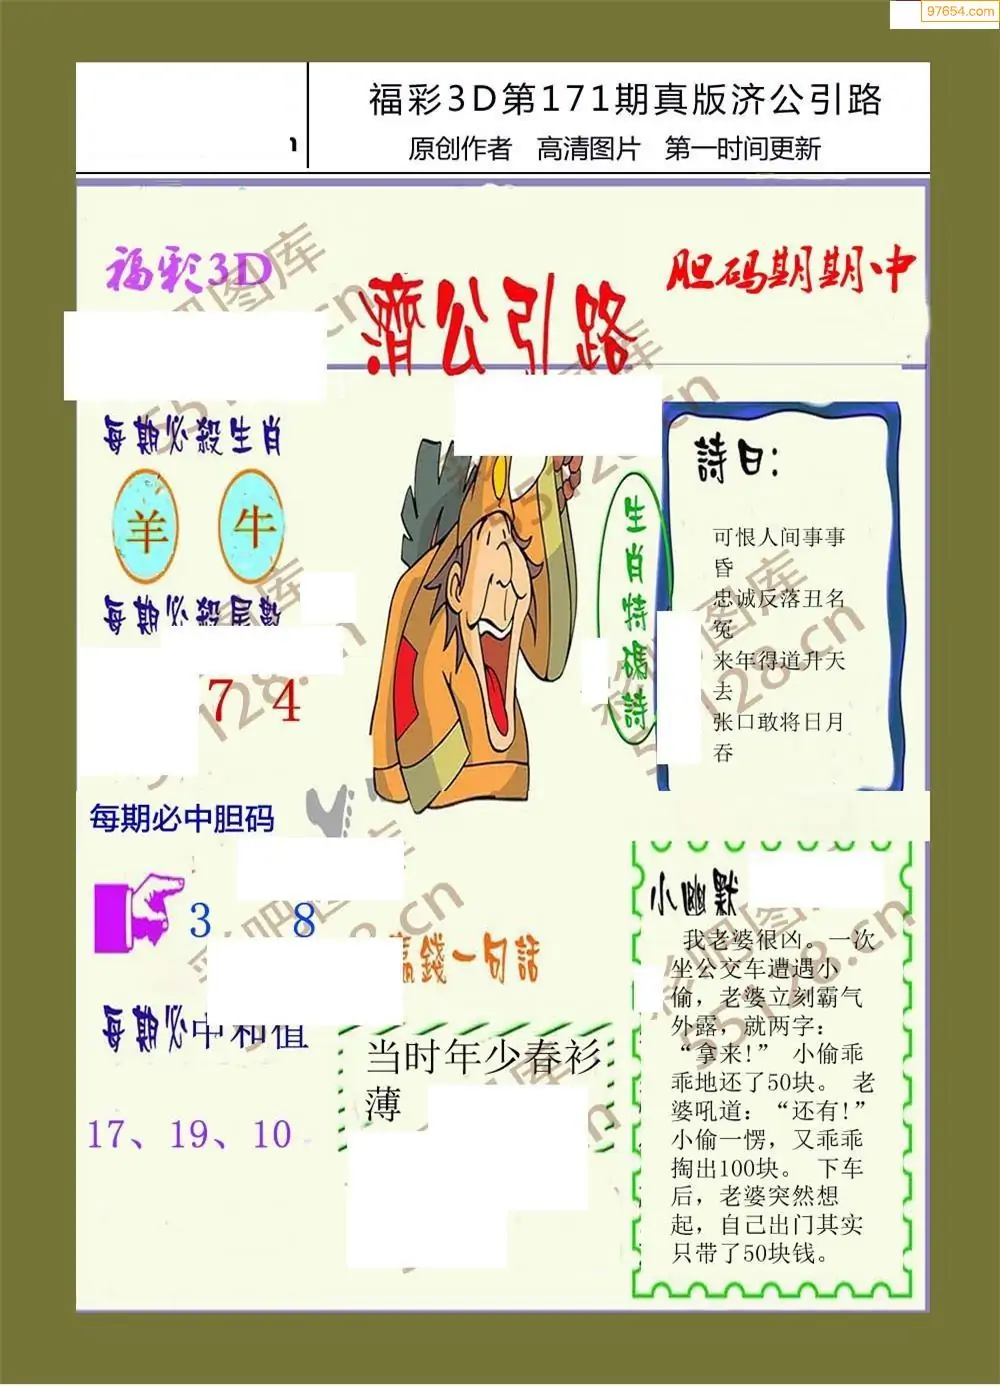 97654.com
福彩3D第171期真版济公引路
原创作者 高清图片 第一时间更新
福彩3D
胆码期期中
濟公引路
每期必殺生肖
羊 牛
每期必殺尾數
7 4
生肖特碼詩
詩曰:
可恨人间事事
昏
忠诚反落丑名
冤
来年得道升天
去
张口敢将日月
吞
每期必中胆码
3 8
赢錢一句話
每期必中和值
当时年少春衫
薄
17、19、10
小幽默
我老婆很凶。一次
坐公交车遭遇小
偷，老婆立刻霸气
外露，就两字：
“拿来!” 小偷乖
乖地还了50块。 老
婆吼道：“还有!”
小偷一愣，又乖乖
掏出100块。 下车
后，老婆突然想
起，自己出门其实
只带了50块钱。
彩吧图库
55128.cn